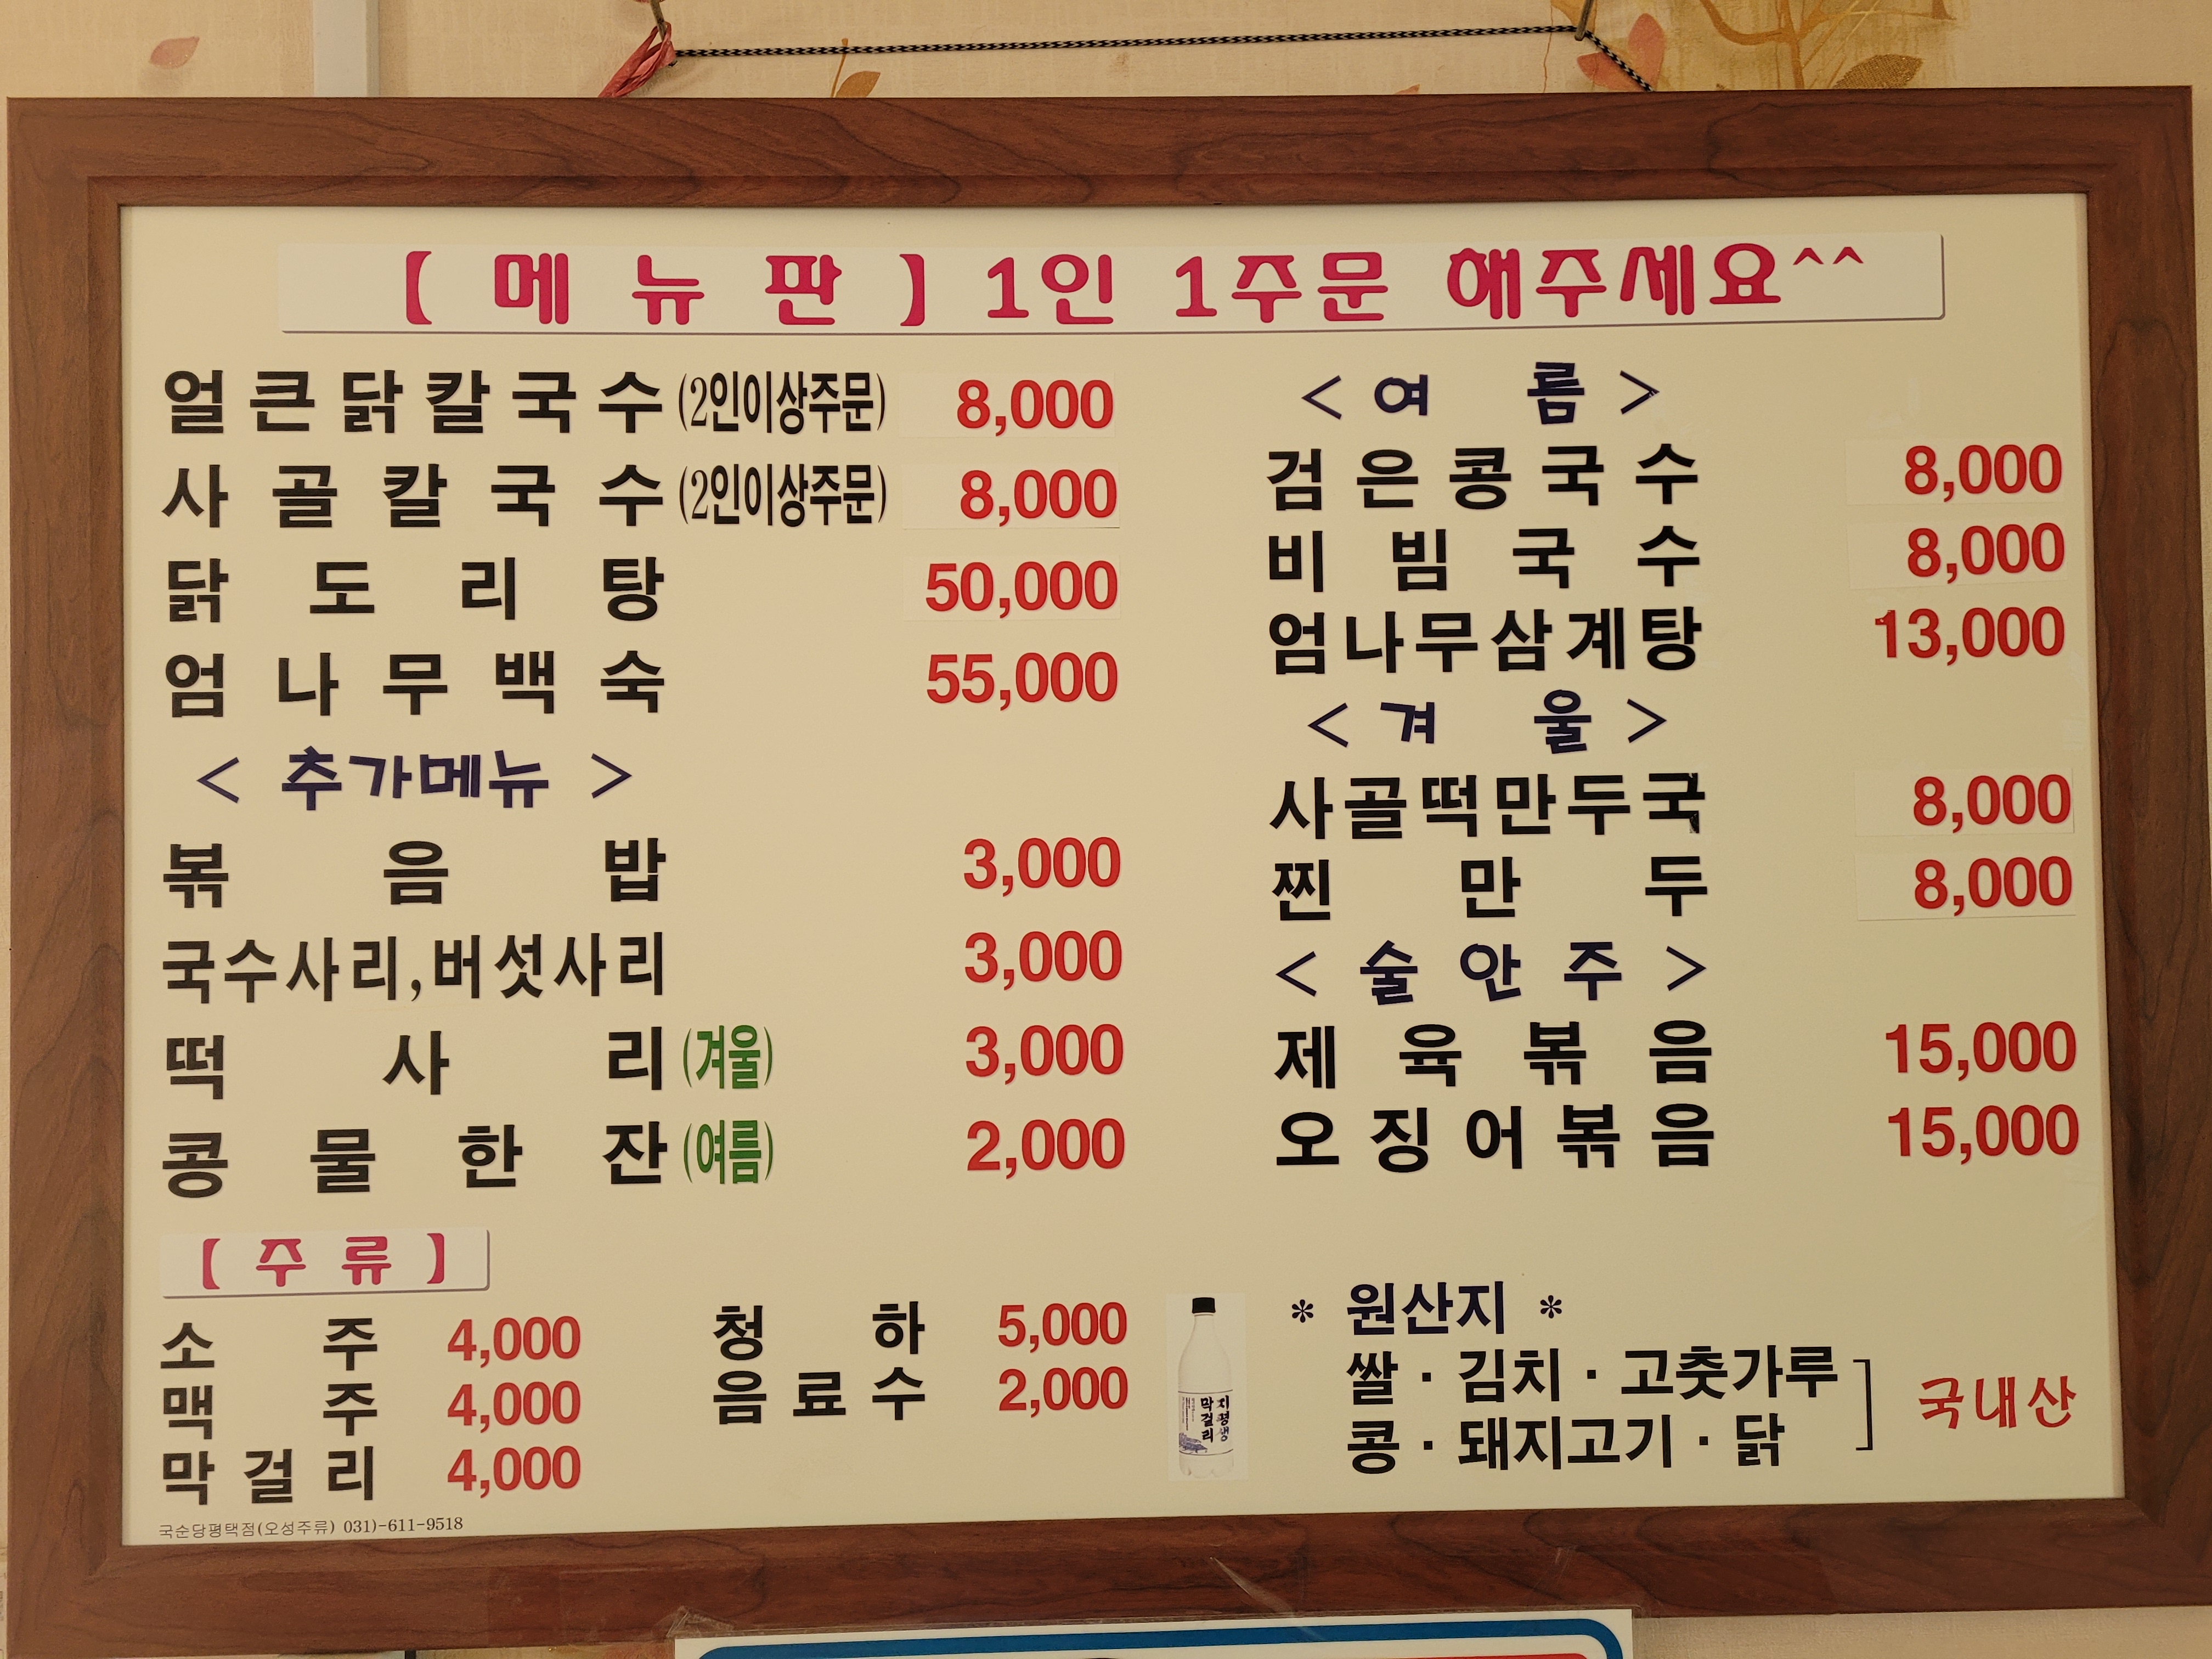 【 메 뉴 판 】 1인 1주문 해주세요^^
얼큰닭칼국수(2인이상주문) 8,000
사골칼국수(2인이상주문) 8,000
닭도리탕 50,000
엄나무백숙 55,000
< 추가메뉴 >
볶음밥 3,000
국수사리,버섯사리 3,000
떡사리(겨울) 3,000
콩물한잔(여름) 2,000
< 여 름 >
검은콩국수 8,000
비빔국수 8,000
엄나무삼계탕 13,000
< 겨 울 >
사골떡만두국 8,000
찐만두 8,000
< 술 안 주 >
제육볶음 15,000
오징어볶음 15,000
【 주 류 】
소주 4,000
맥주 4,000
막걸리 4,000
청하 5,000
음료수 2,000
지평생
막걸리
* 원산지 *
쌀 · 김치 · 고춧가루
콩 · 돼지고기 · 닭
] 국내산
국순당평택점(오성주류) 031)-611-9518